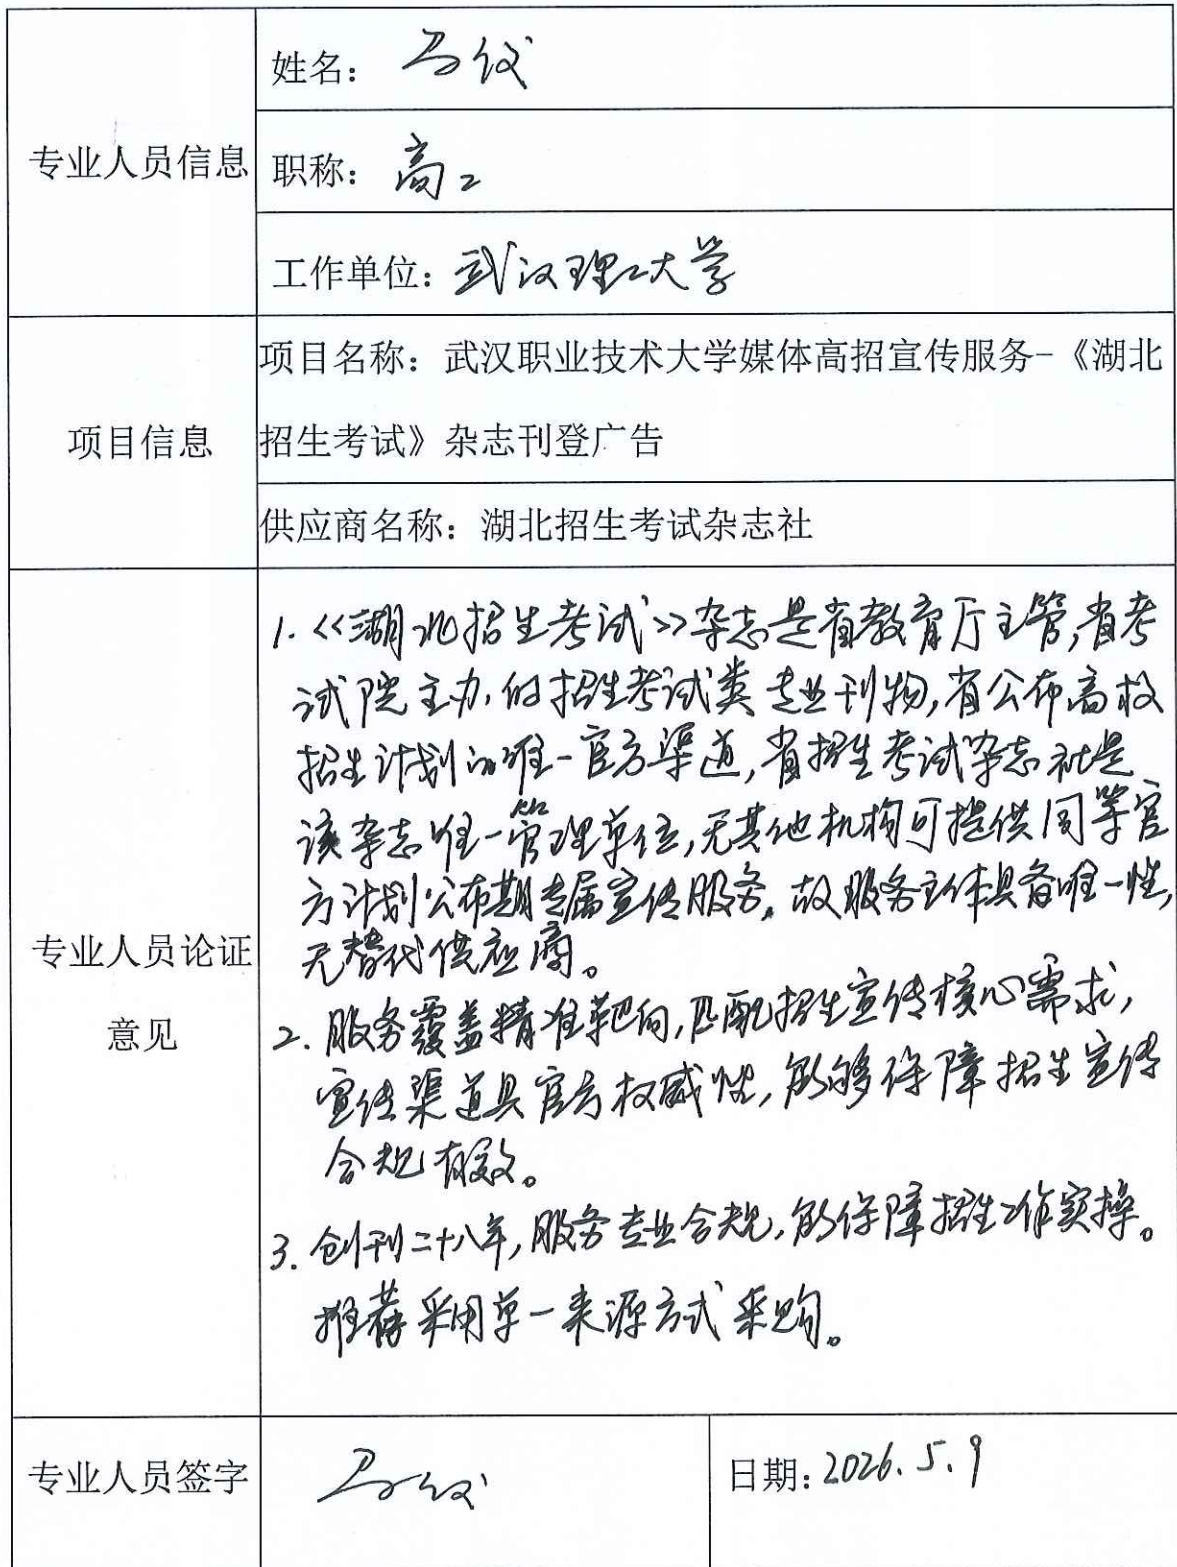 专业人员信息
姓名：马仪
职称：高工
工作单位：武汉理工大学
项目信息
项目名称：武汉职业技术大学媒体高招宣传服务-《湖北
招生考试》杂志刊登广告
供应商名称：湖北招生考试杂志社
专业人员论证
意见
1.《湖北招生考试》杂志是省教育厅主管,省考
试院主办,的招生考试类专业刊物,省公布高校
招生计划的唯一官方渠道,省招生考试杂志社是
该杂志唯一管理单位,无其他机构可提供同等官
方计划公布期专属宣传服务。故服务主体具备唯一性,
无替代供应商。
2.服务覆盖精准靶向,匹配招生宣传核心需求,
宣传渠道具官方权威性,能够保障招生宣传
合规有效。
3.创刊二十八年,服务专业合规,能保障招生工作实操。
推荐采用单一来源方式采购。
专业人员签字
马仪
日期:2026.5.9